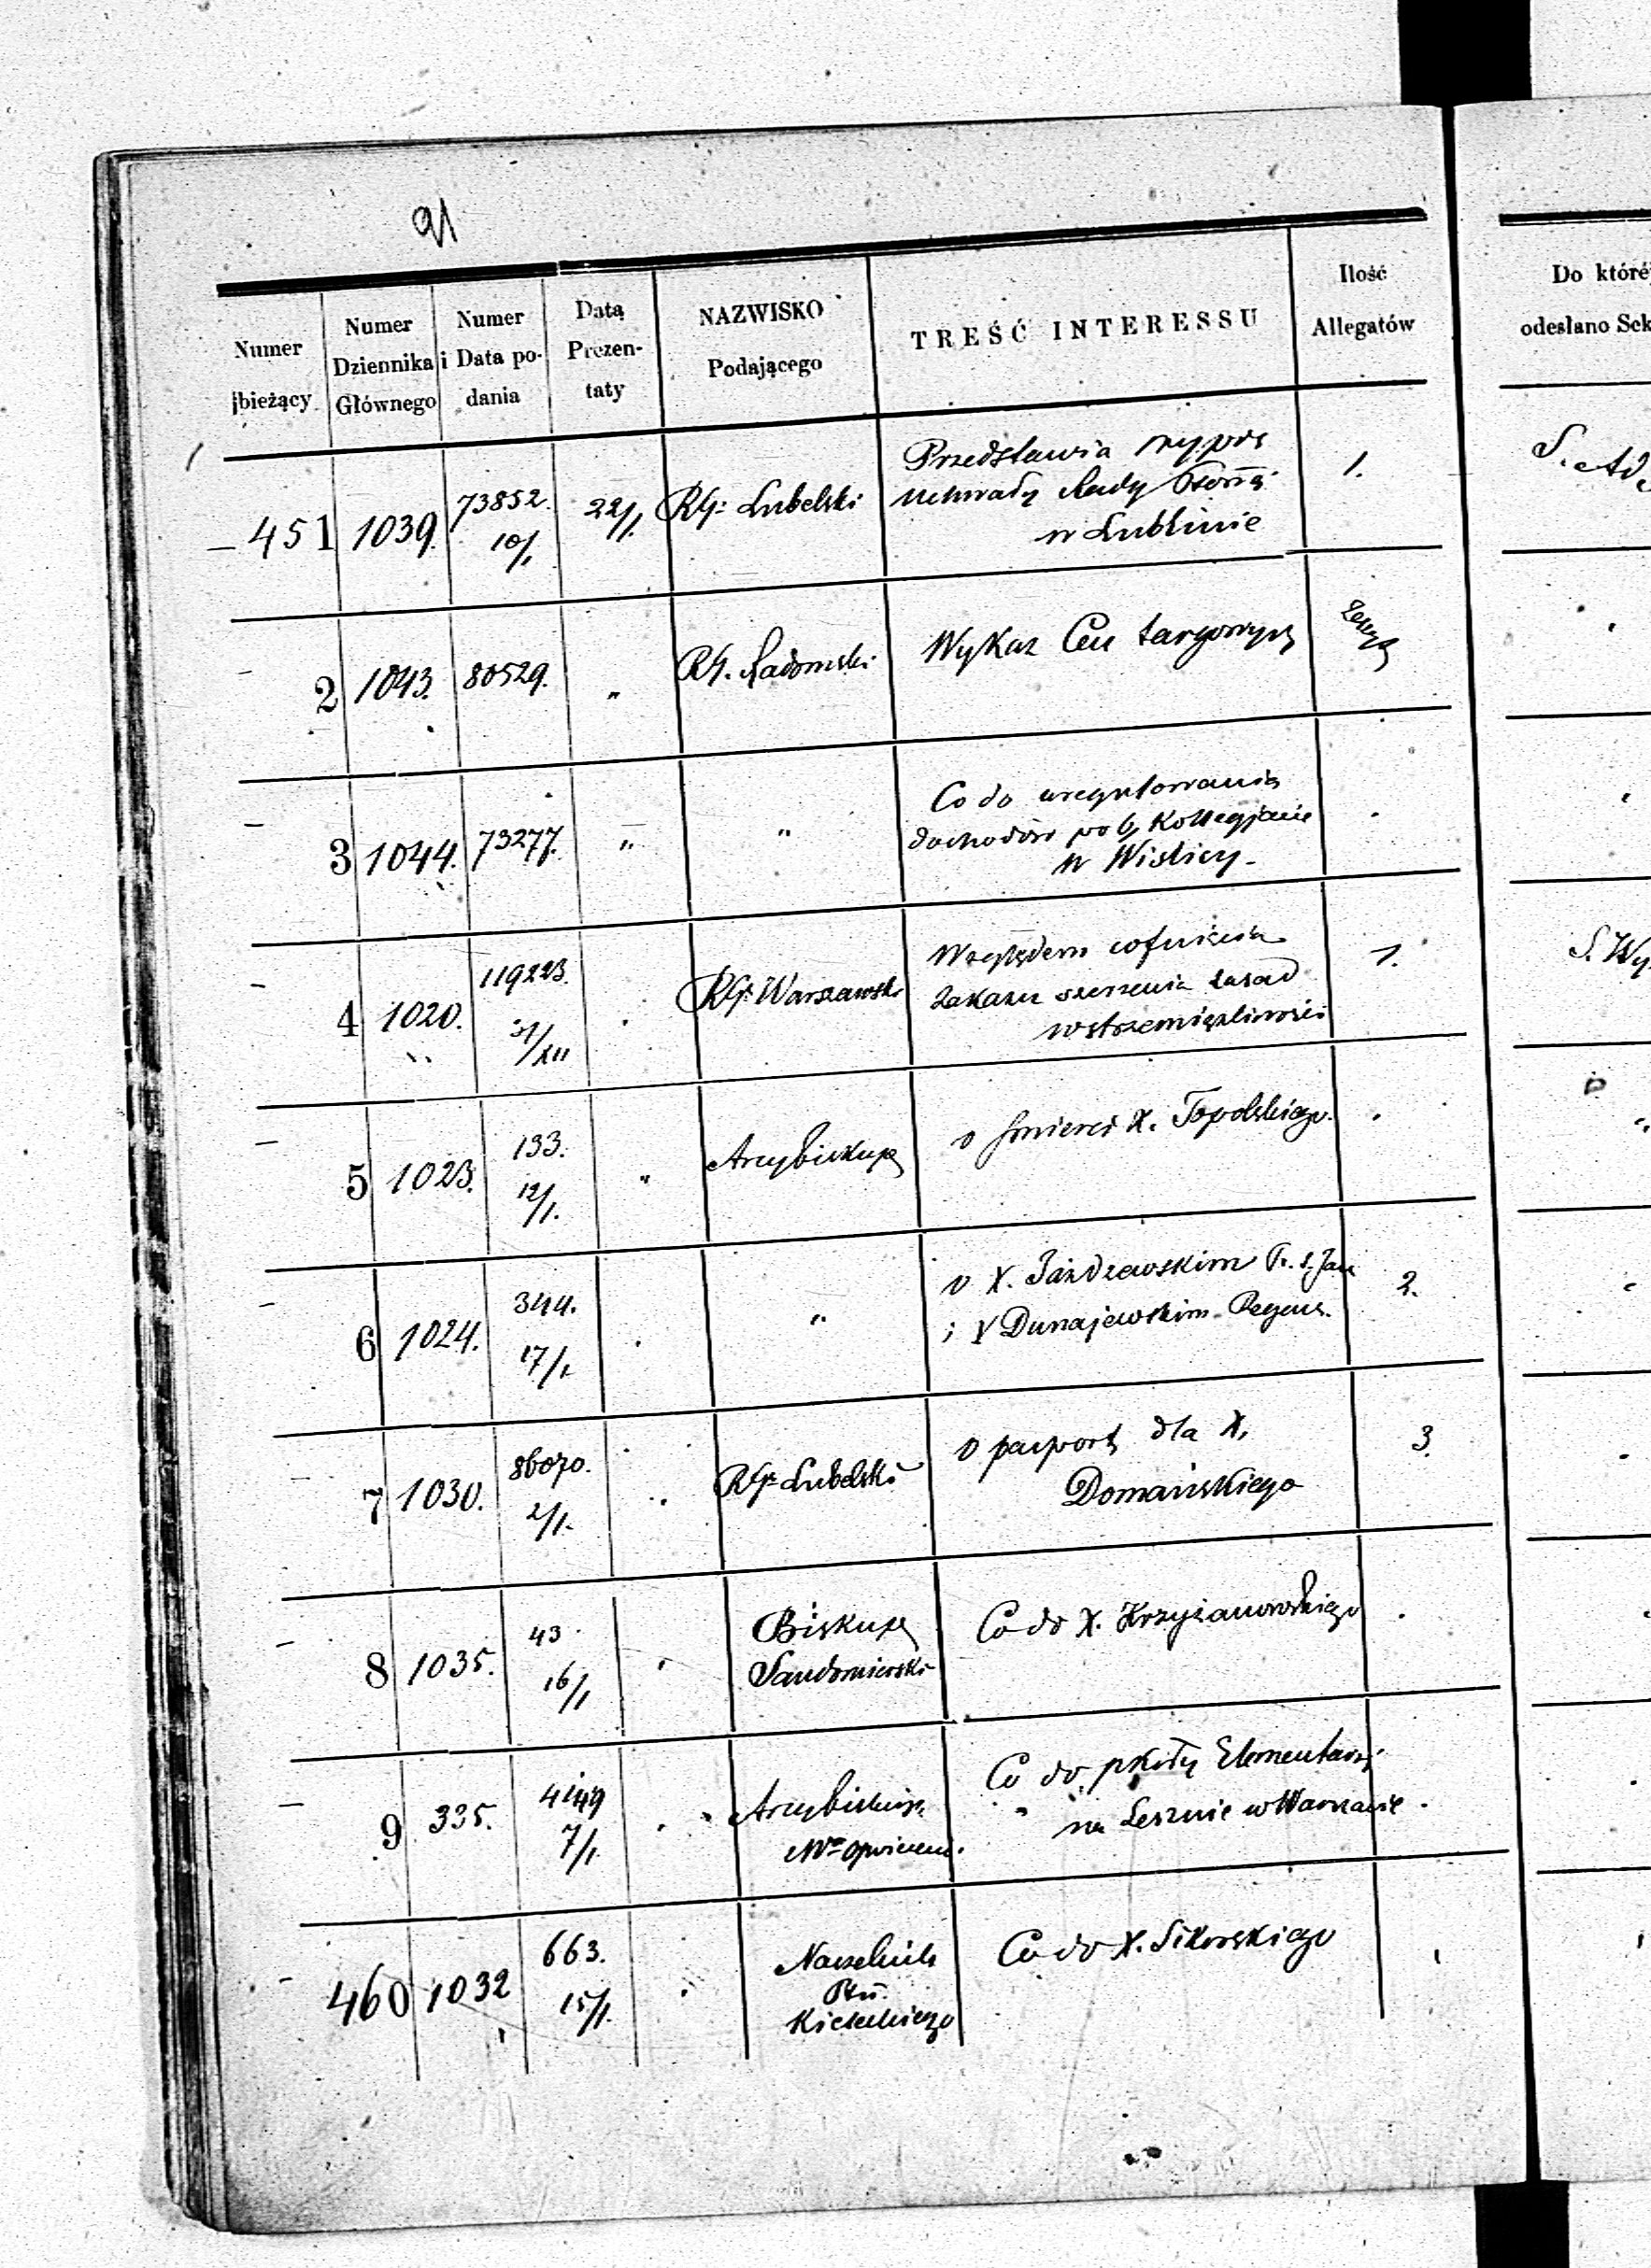 91
Numer bieżący
Numer Dziennika Głównego
Numer i Data podania
Data Prezentaty
NAZWISKO Podającego
TREŚĆ INTERESSU
Ilość Allegatów
Do któré
odesłano Sek
451 1039. 73852. 10/1 22/1 RG: Lubelski Przedstawia wypis
uchwały Rady
w Lublinie 1.
2 1043. 80529. " RG. Radomski Wykaz Cen targowych
3 1044. 73277. " " Co do uregulowania
dochodów po b. Kollegjacie
w Wiślicy
4 1020. 119223. 31/XII RG: Warszawski Względem cofnięcia
zakazu szerzenia zasad
wstrzemięźliwości 1. S. Wy
5 1023. 133. 12/1. " Arcybiskup o śmierci X. Topolskiego.
6 1024. 344. 17/1. " o X. Jażdzewskim
i X Dunajewskim 2.
7 1030. 86070. 2/1. RG: Lubelski o paszport dla X.
Domańskiego 3.
8 1035. 43 16/1 Biskup
Sandomierski Co do X. Krzyżanowskiego
9 335. 7/1 Arcybiskup Co do szkoły Elementarnj
na Lesznie w Warszawie
460 1032 663. 15/1. Naczelnik
Ptu.
Kieleckiego Co do X. Sikorskiego